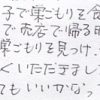 子で巣ごもりを食
で売店で帰る時
巣ごもりを見つけ、
くいただきまし
てもいいかなっ